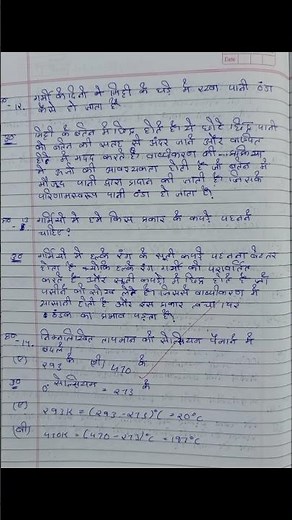 Date
प्र०-12. गर्मी के दिनों में मिट्टी के घड़े में रखा पानी ठंडा
कैसे हो जाता है
उ० मिट्टी के बर्तन में छिद्र होते है। ये छोटे छिद्र पानी
को बर्तन की सतह से अंदर जाने और वाष्पित
होने में मदद करते है। वाष्पीकरण की
में ऊर्जा की आवश्यकता होती है जो बर्तन में
मौजूद पानी द्वारा प्रदान की जाती है। जिसके
परिणामस्वरूप पानी ठंडा हो जाता है।
प्र०-13 गर्मियों में हमे किस प्रकार के कपड़े पहनने
चाहिए?
उ० गर्मियों में हल्के रंग के सूती कपड़े पहनना बेहतर
होता है क्योंकि हल्के रंग गर्मी को परावर्तित
करते है, और सूती कपड़ो में छिद्र होते है जो
पसीने को सोख लेते है। जिससे वाष्पीकरण में
आसानी होती है और इस प्रकार त्वचा पर
ठंडक का प्रभाव पड़ता है।
प्र०-14. निम्नलिखित तापमान को सेल्सियस पैमाने में
बदले।
293 K (बी) 470 K
उ० 0 सेल्सियस = 273 K
(ए) 293K = (293-273)°C = 20°C
(बी) 470K = (470-273)°C = 197°C